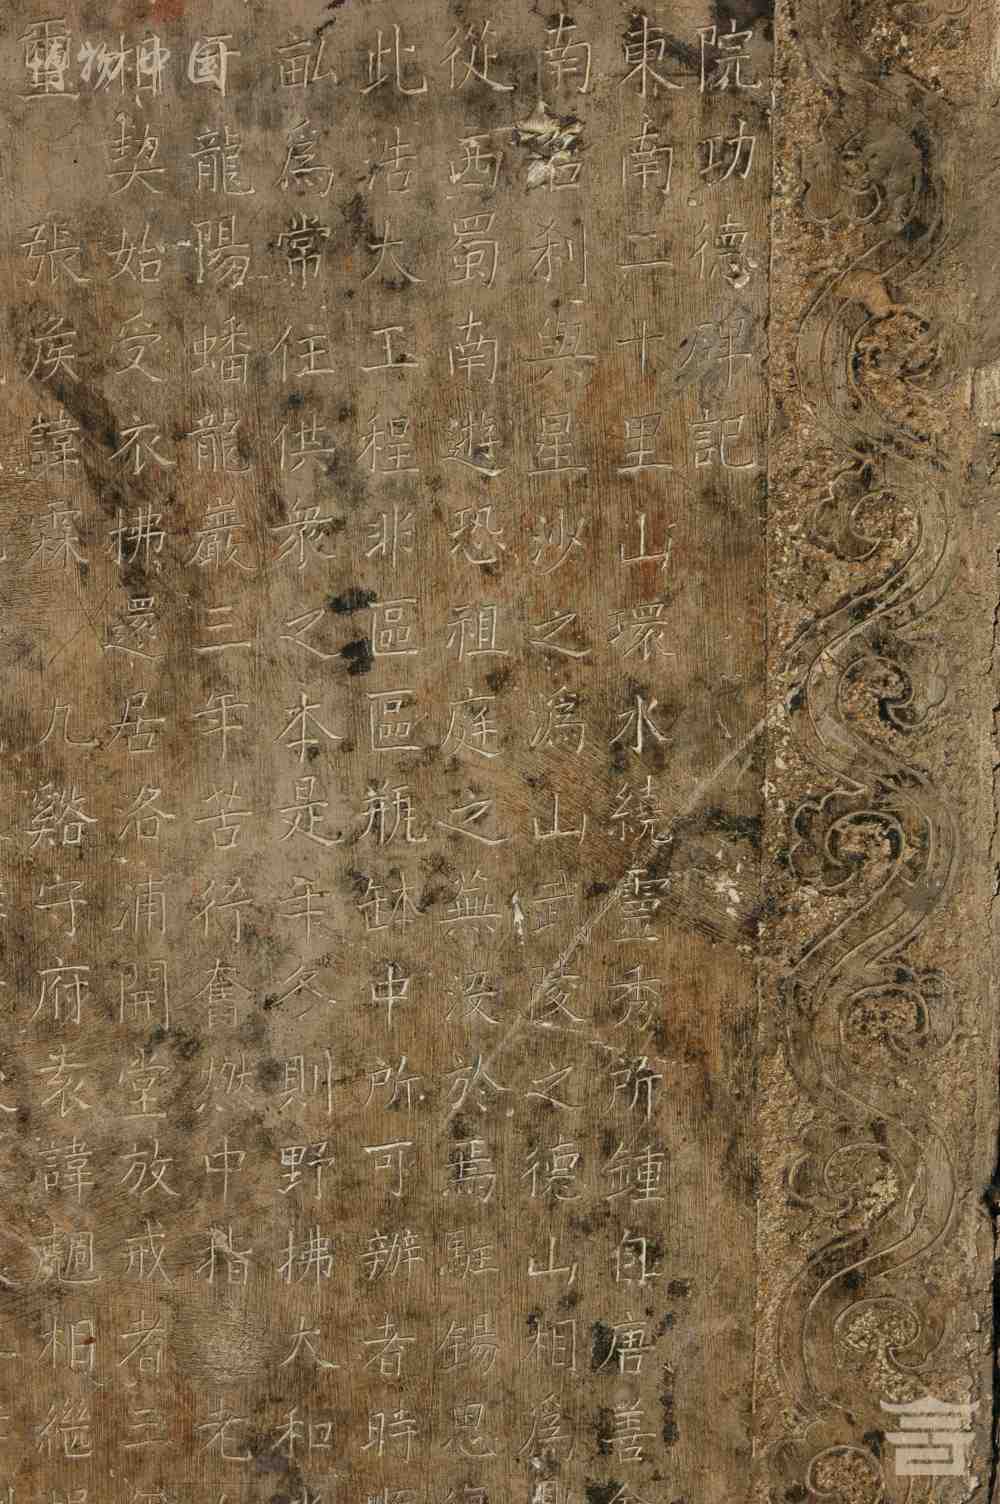 院功德碑記
東南二十里山環水繞靈秀所鍾自唐善
南名刹與星沙之溈山武陵之德山相爲
從西蜀南遊恐祖庭之蕪没於焉駐錫思
此浩大工程非區區瓶缽中所可辦者時
畝爲常住供衆之本是年冬則野拂大和
龍陽蟠龍巖三年苦行奮燃中指 老
契始受衣拂還居洛浦開堂放戒者三
張侯諱霖 九谿守府袁諱 相繼
博物中国